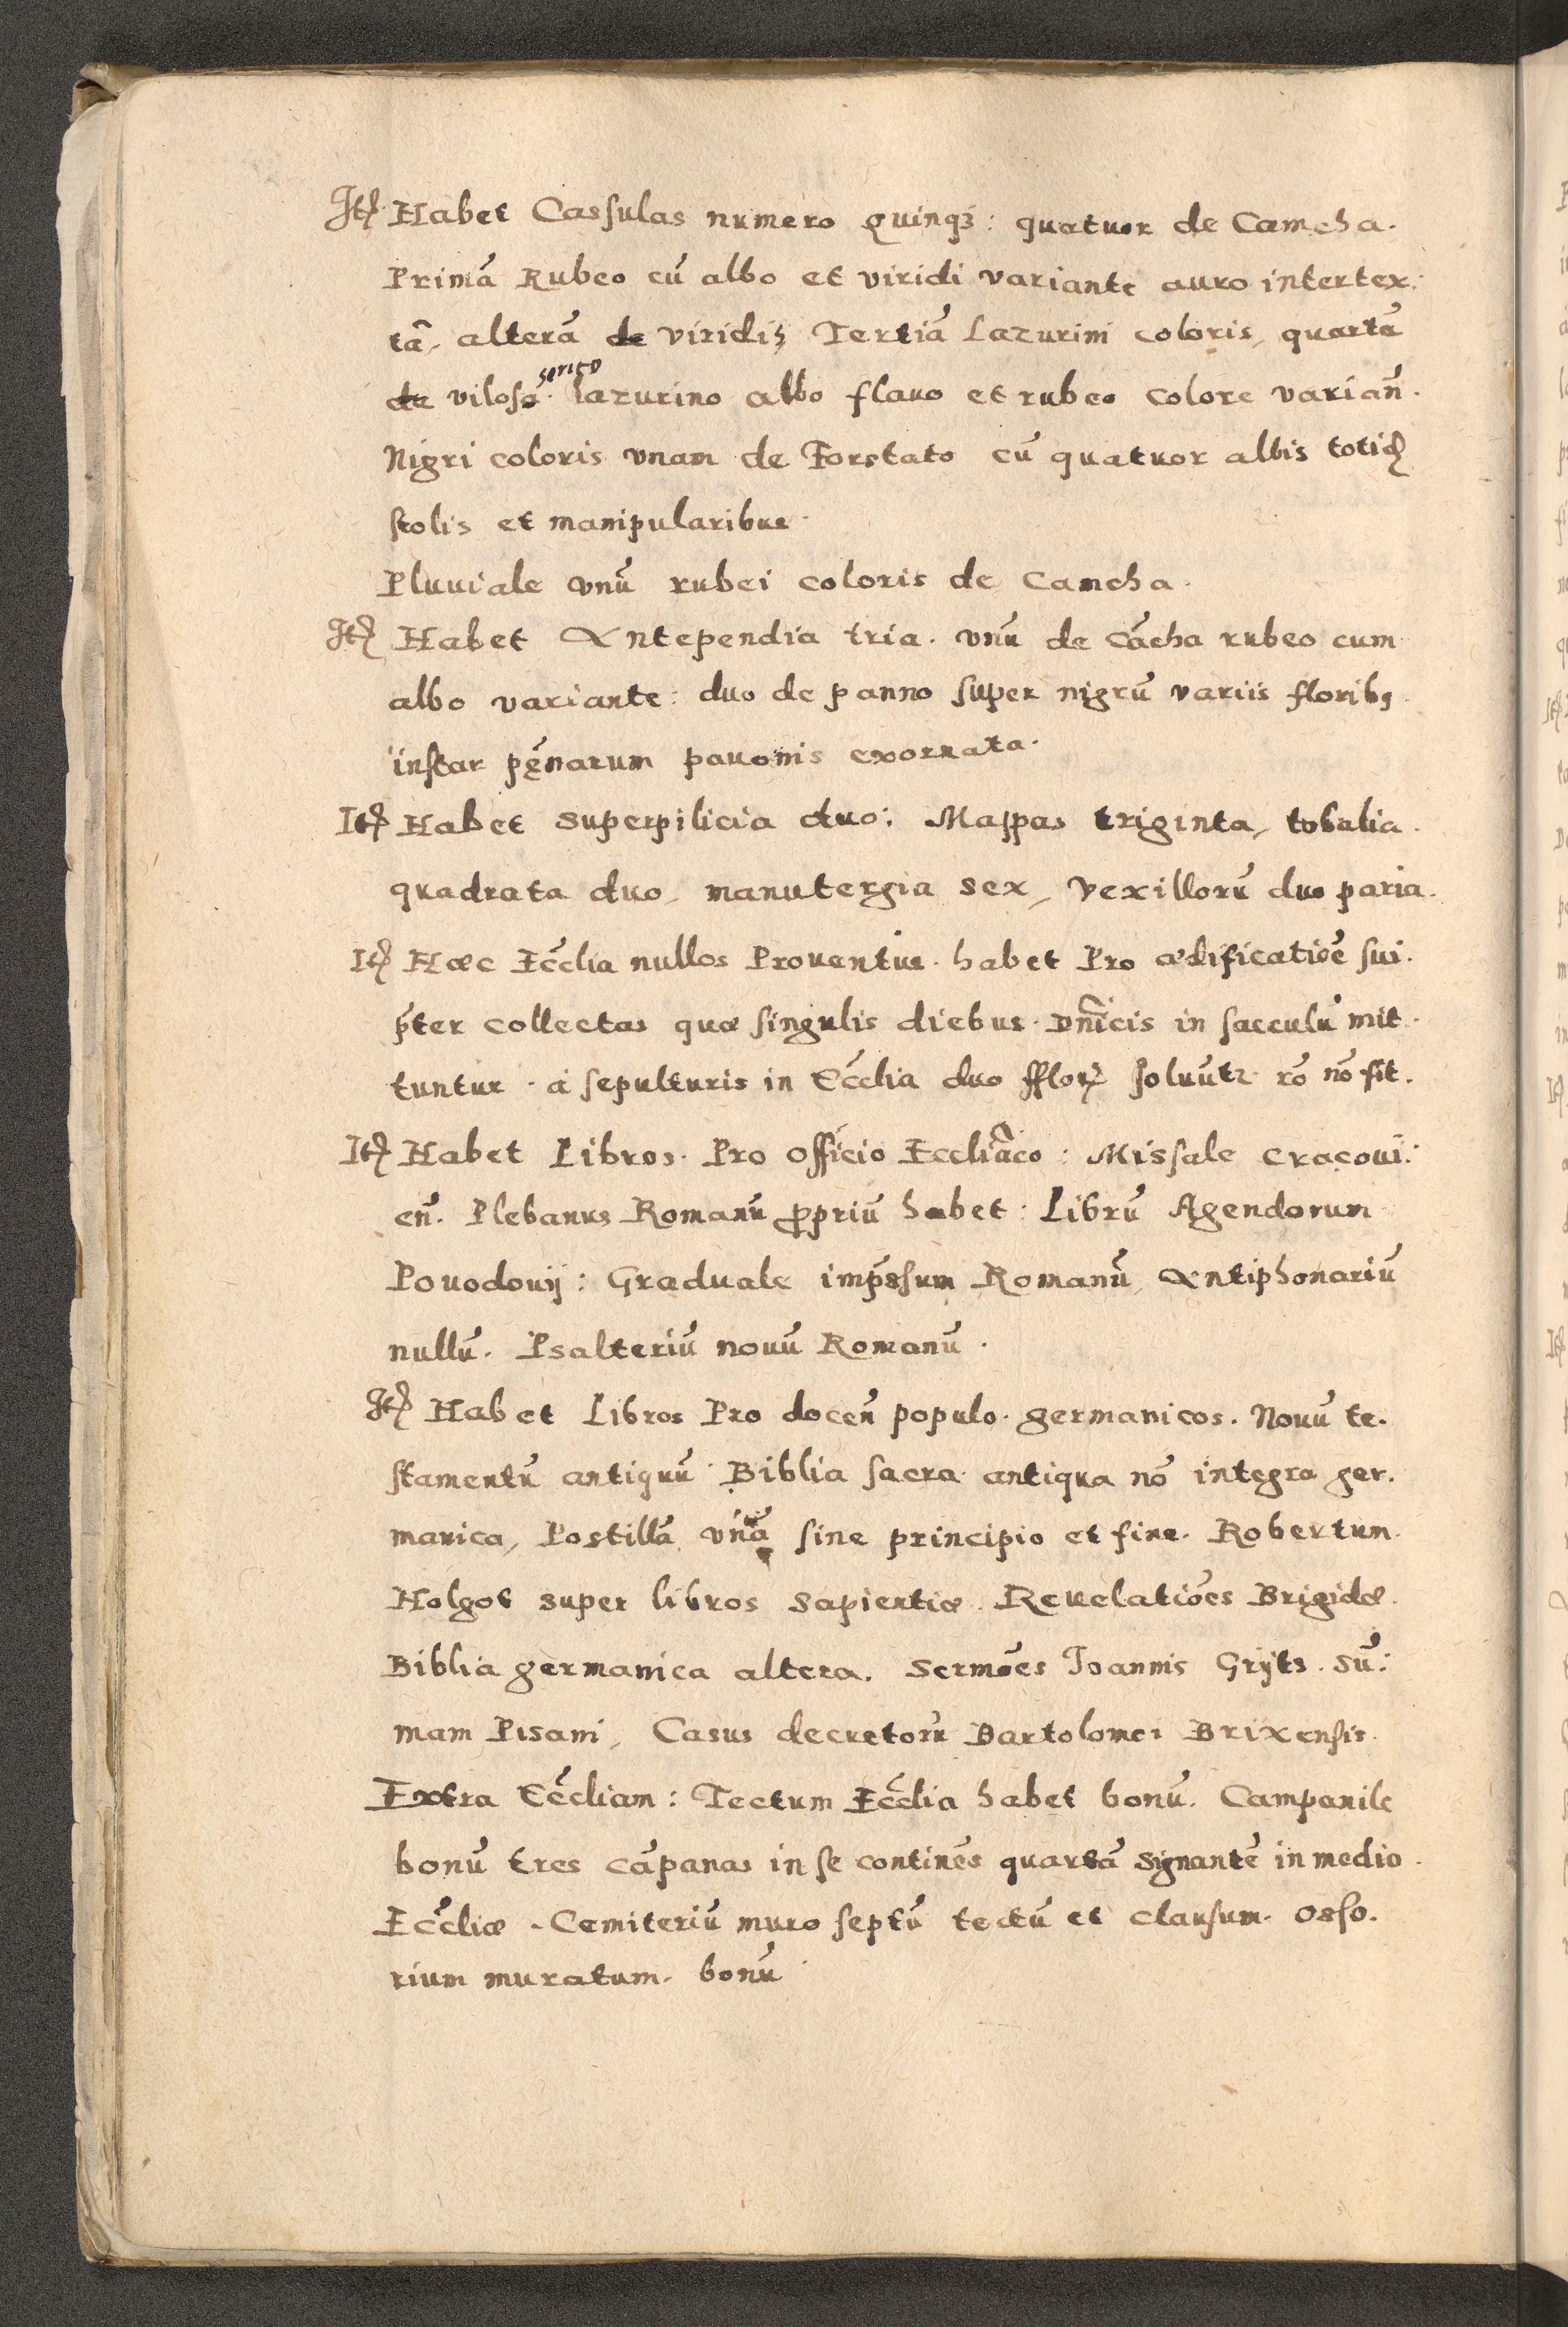 Itē Habet Cassulas numero quinqȝ: quatuor de Camcha.
Primā Rubeo cū albo et viridi variante auro intertex:
tā, alterā de viridiȝ Tertiā Lazurini coloris, quartā
de vilosa serico lazurino albo flauo et rubeo colore varian̄.
Nigri coloris vnam de Forstato cū quatuor albis totid
stolis et manipularibus.
Pluuiale vnū rubei coloris de Camcha.
Itē Habet Antependia tria. vnū de cācha rubeo cum
albo variante: duo de panno super nigrū variis floribȝ
instar pęnarum pauonis exornata.
Itē Habet superpilicia duo: Mappas triginta, tobalia.
quadrata duo, manutergia sex, vexillorū duo paria.
Itē Hæc Ecclīa nullos Prouentus habet Pro ædificatiōe sui.
pr̄ter collectas quæ singulis diebus. Dn̄icis in sacculū mit.
tuntur. à sepulturis in Ecclīa duo fflor soluūtr rō nō fit.
Itē Habet Libros. Pro officio Eccliāco: Missale Cracoui:
en̄. Plebanus Romanū ꝓpriū habet: Librū Agendorum
Pouodouij: Graduale imp̄ssum Romanū, Antiphonariū
nullū. Psalteriū nouū Romanū.
Itē Habet Libros Pro docen̄ populo. germanicos. Nouū te.
stamentū antiquū. Biblia sacra antiqua nō integra ger.
manica, Postillā vnā sine principio et fine. Robertum
Holgot super libros Sapientiæ. Reuelatiōes Brigidæ.
Biblia germanica altera. Sermōes Joannis Grÿts. Sū:
mam Pisani, Casus decretorū Bartolomei Brixensis.
Extra Ecclīam: Tectum Ecclīa habet bonū. Campanile
bonū tres cāpanas in se continēs quartā signantē in medio.
Ecclīæ. Cemiteriū muro septū tectū et clausum. Osso.
rium muratum. bonū